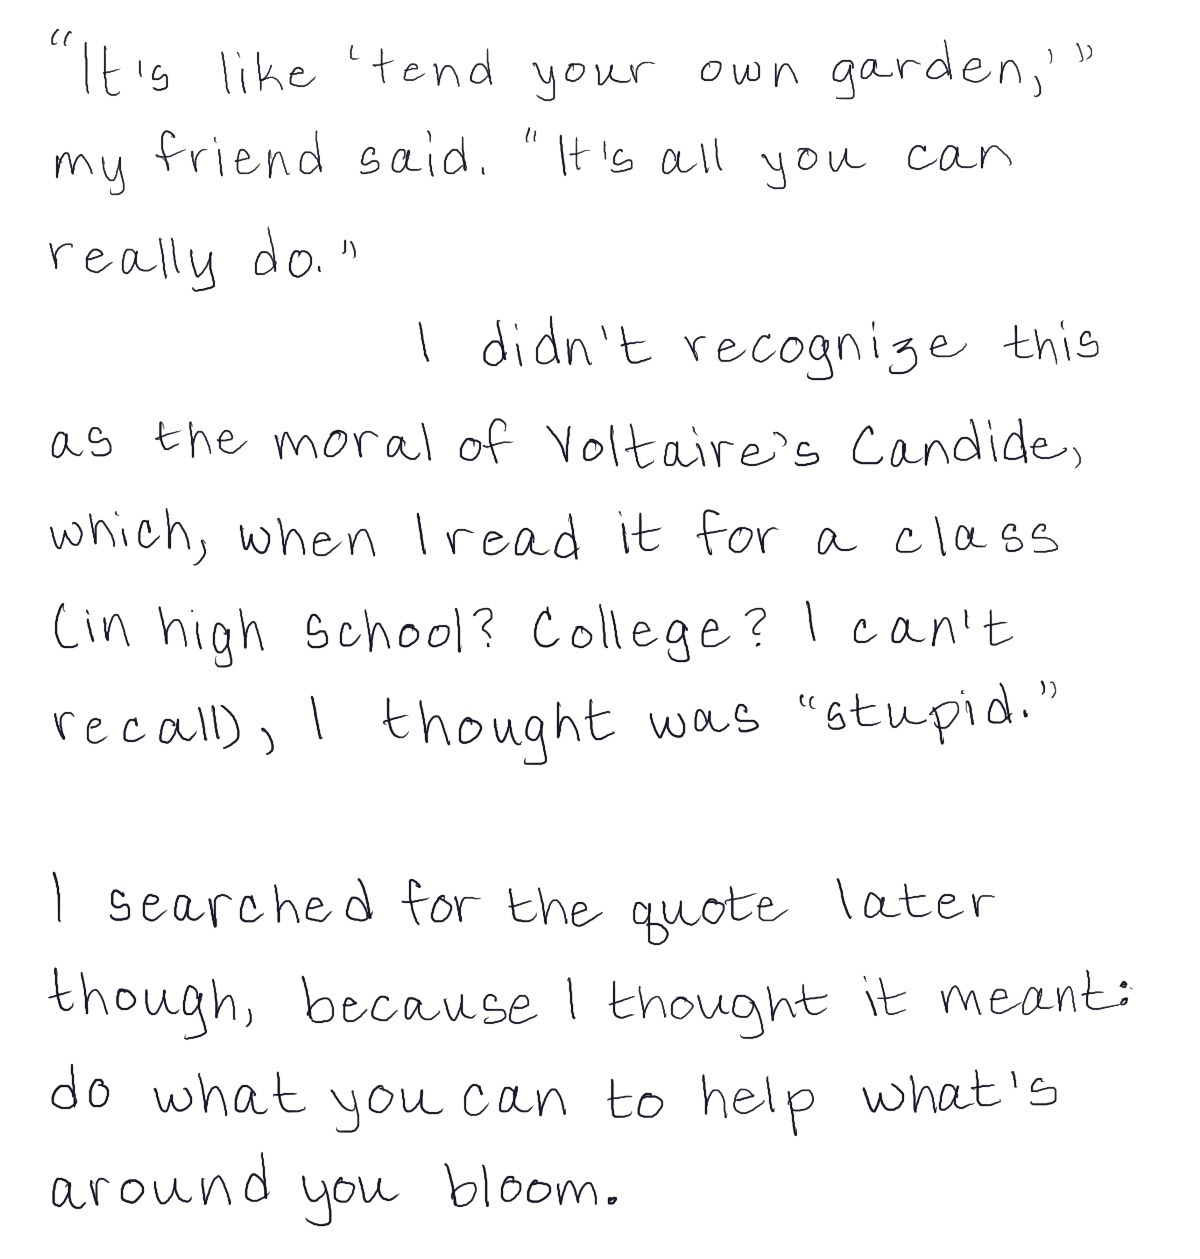 “It's like ‘tend your own garden,’”
my friend said. “It's all you can
really do.”
I didn't recognize this
as the moral of Voltaire's Candide,
which, when I read it for a class
(in high school? College? I can't
recall), I thought was “stupid.”
I searched for the quote later
though, because I thought it meant:
do what you can to help what's
around you bloom.